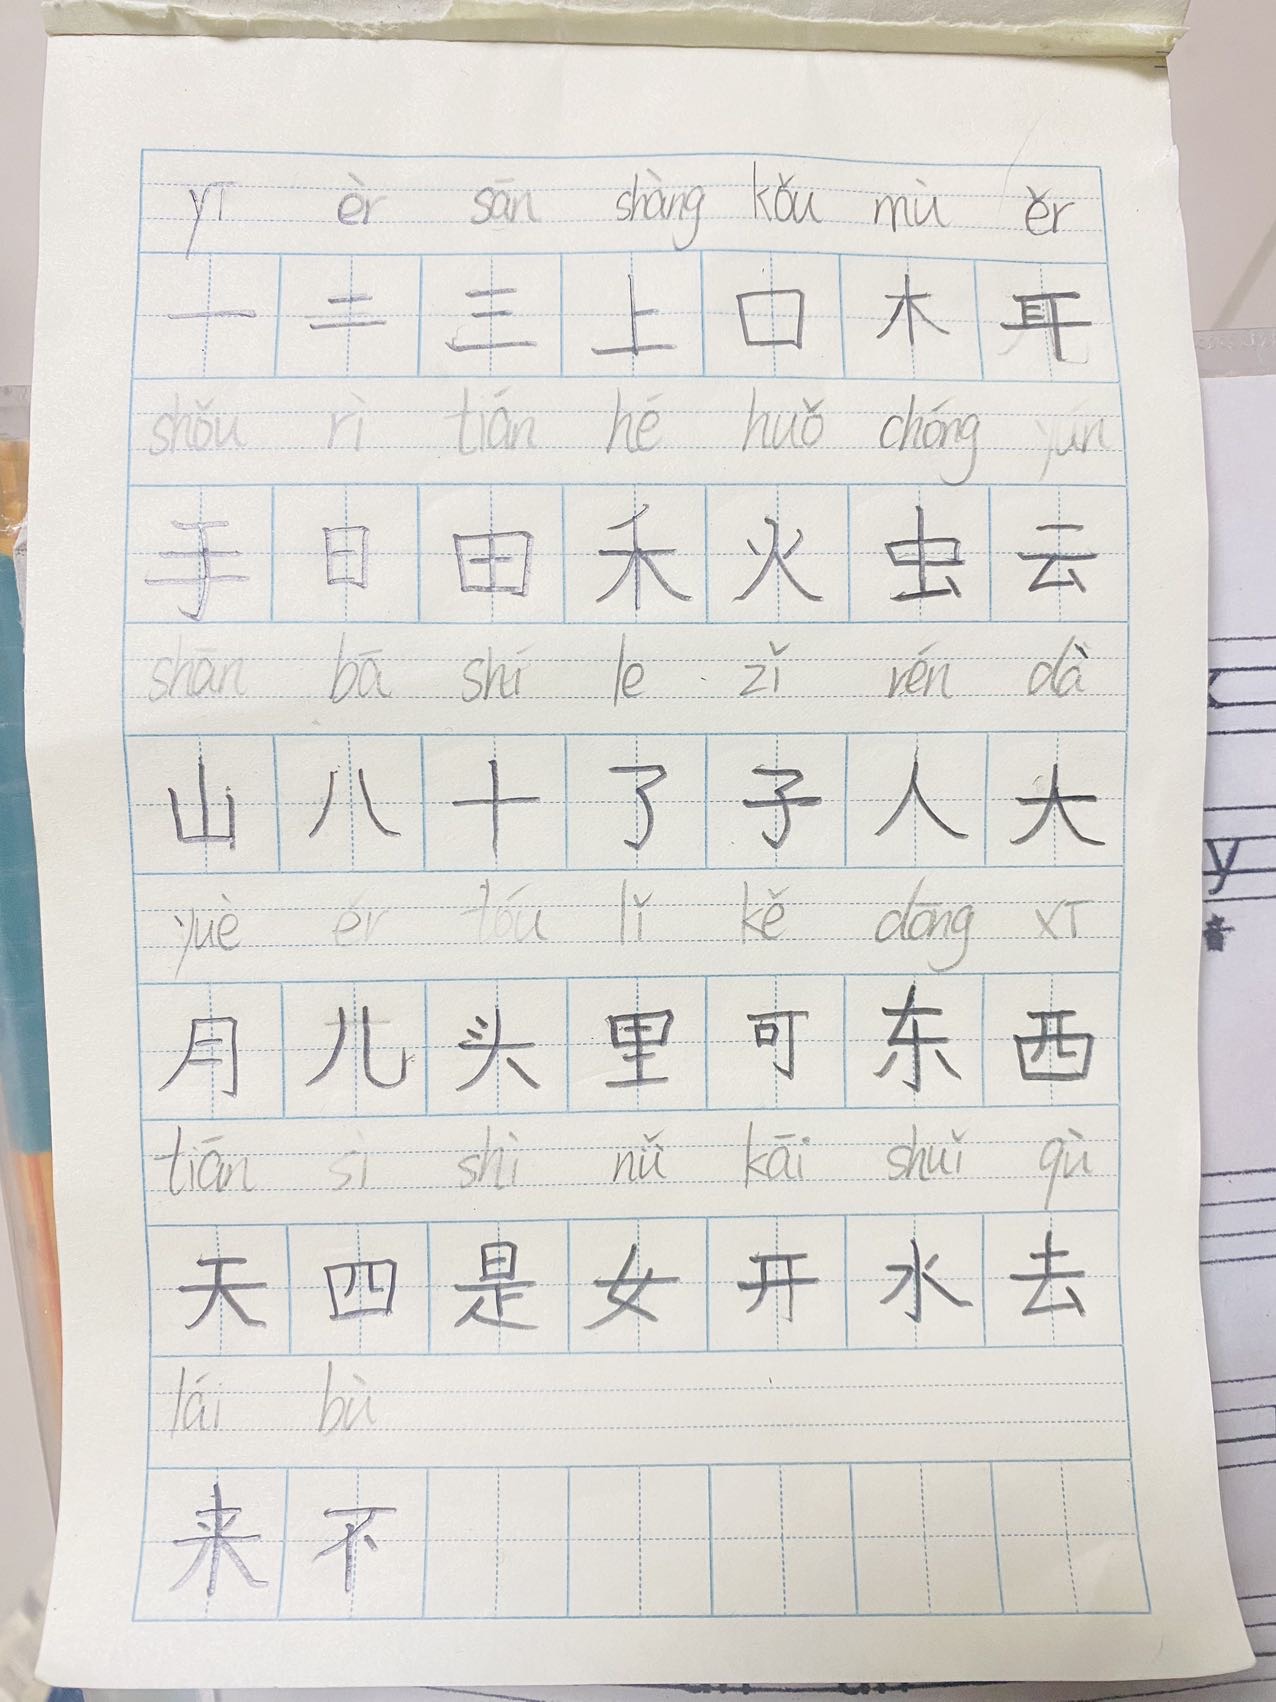 yī èr sān shàng kǒu mù ěr
一 二 三 上 口 木 耳
shǒu rì tián hé huǒ chóng yún
手 日 田 禾 火 虫 云
shān bā shí le zǐ rén dà
山 八 十 了 子 人 大
yuè ér tóu lǐ kě dōng xī
月 儿 头 里 可 东 西
tiān sì shì nǚ kāi shuǐ qù
天 四 是 女 开 水 去
lái bù
来 不
y
音